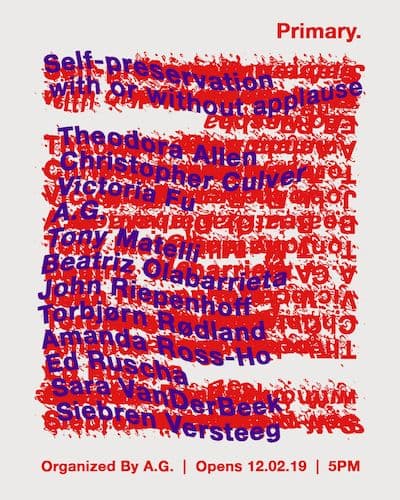 Primary.
Self-preservation
with or without applause
Theodora Allen
Christopher Culver
Victoria Fu
A.G.
Tony Matelli
Beatriz Olabarrieta
John Riepenhoff
Torbjørn Rødland
Amanda Ross-Ho
Ed Ruscha
Sara VanDerBeek
Siebren Versteeg
Organized By A.G. | Opens 12.02.19 | 5PM